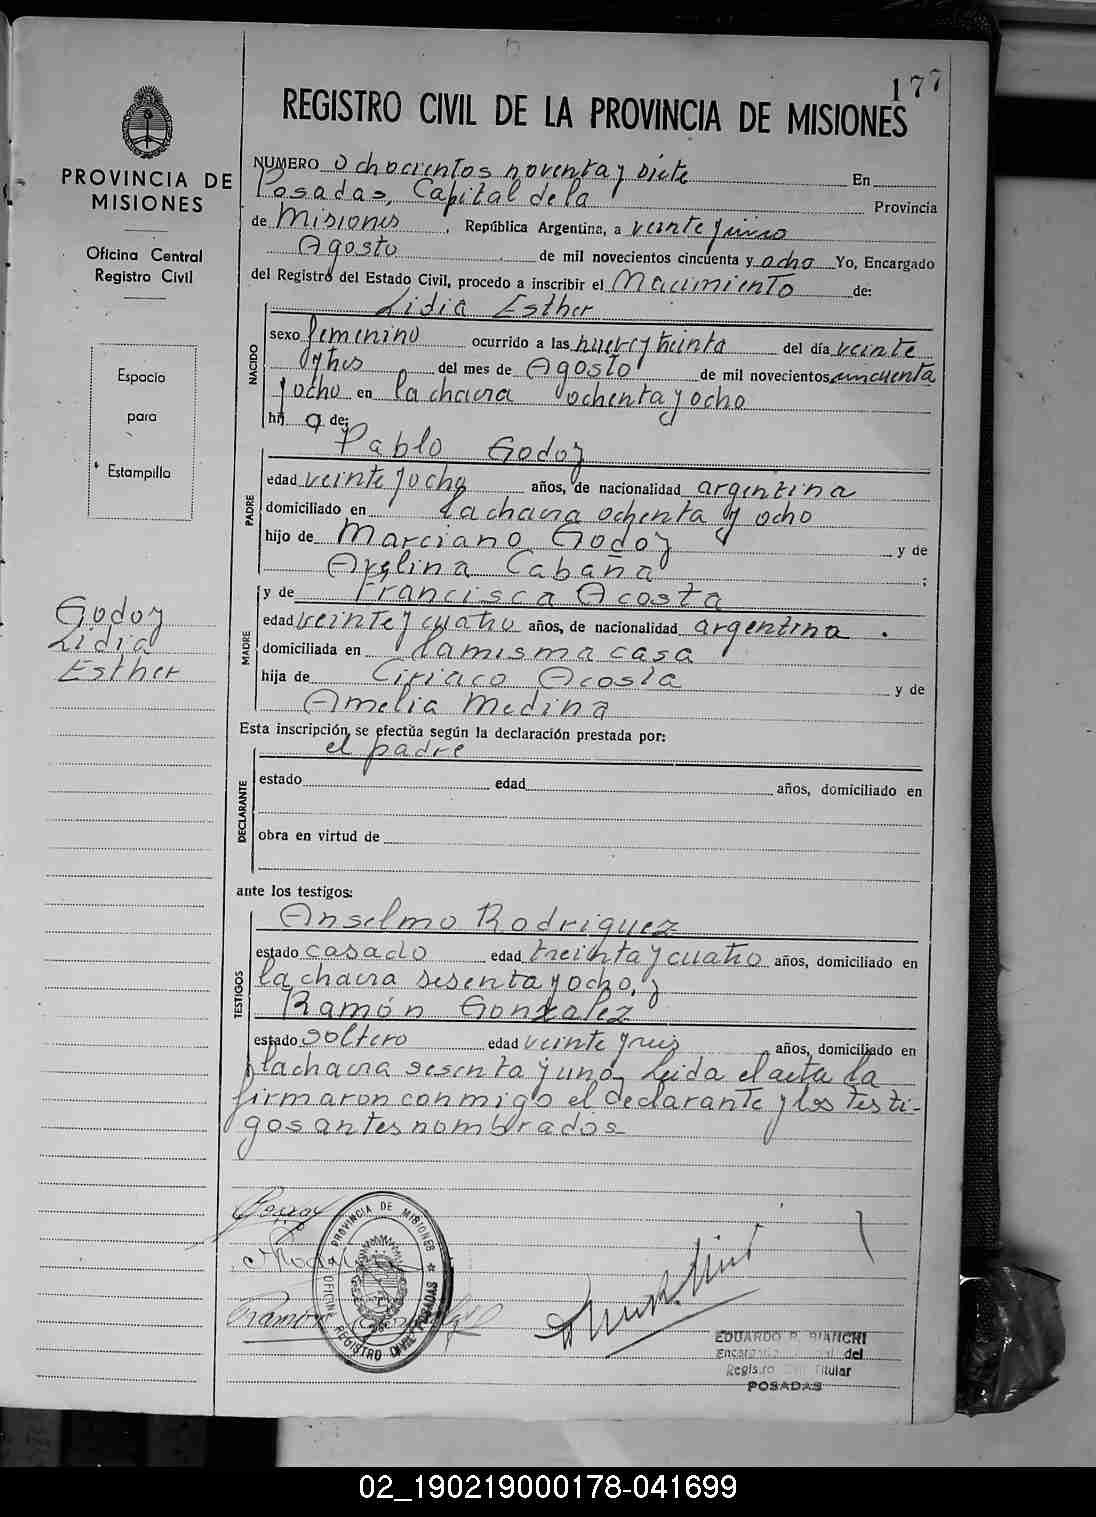 177
REGISTRO CIVIL DE LA PROVINCIA DE MISIONES
PROVINCIA DE
MISIONES
Oficina Central
Registro Civil
Espacio
para
Estampilla
Godoy
Lidia
Esther
NUMERO Ochocientos noventa y siete En
Posadas, Capital de la Provincia
de Misiones, República Argentina, a veinte y cinco
Agosto de mil novecientos cincuenta y ocho Yo, Encargado
del Registro del Estado Civil, procedo a inscribir el Nacimiento de:
Lidia Esther
NACIDO
sexo femenino ocurrido a las nueve y treinta del día veinte
y tres del mes de Agosto de mil novecientos cincuenta
y ocho en la chacra ochenta y ocho
hij a de:
Pablo Godoy
PADRE
edad veinte y ocho años, de nacionalidad argentina
domiciliado en la chacra ochenta y ocho
hijo de Marciano Godoy y de
Avelina Cabaña ;
MADRE
y de Francisca Acosta
edad veinte y cuatro años, de nacionalidad argentina .
domiciliada en la misma casa
hija de Ciriaco Acosta y de
Amelia Medina
Esta inscripción, se efectúa según la declaración prestada por:
el padre
DECLARANTE
estado edad años, domiciliado en
obra en virtud de
ante los testigos:
TESTIGOS
Anselmo Rodriguez
estado casado edad treinta y cuatro años, domiciliado en
la chacra sesenta y ocho, y
Ramón Gonzalez
estado soltero edad veinte y seis años, domiciliado en
la chacra sesenta y uno, Leida el acta la
firmaron conmigo el declarante y los testi-
gos antes nombrados
PROVINCIA DE MISIONES
OFICINA REGISTRO CIVIL POSADAS
Ramón
EDUARDO R. BIANCHI
del
Registro Titular
POSADAS
02_190219000178-041699